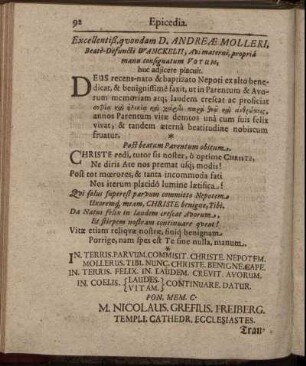 92 Epicedia.
Excellentiss. quondam D. ANDREÆ MOLLERI,
Beatè-Defuncti WANCKELII, Avi materni, propriâ
manu consignatum VOTUM,
huc adjicere placuit.
DEUS recens-nato & baptizato Nepoti ex alto bene-
dicat, & benignissimè faxit, ut in Parentum & Avo-
rum memoriam atq; laudem crescat ac proficiat
annos Parentum vitæ demtos unà cum suis felix
vivat; & tandem æternâ beatitudine nobiscum
fruatur.
*
Post beatum Parentum obitum.
CHRISTE redi, totor sis noster, ô optime CHRISTE,
Ne diris Ate nos premat usq; modis!
Post tot mœrores, & tanta incommoda fati
Nos iterum placidô lumine lætifica!
Qui solus superest parvum committo Nepotem
Uxoremq; meam, CHRISTE benigne, Tibi.
Da Natus felix in laudem crescat Avorum,
Et stirpem nostram continuare queat!
Vitæ etiam reliquæ nostræ, finiq; benignam,
Porrige, nam spes est Te sine nulla, manum.
*
IN. TERRIS. PARVUM. COMMISIT. CHRISTE. NEPOTEM.
MOLLERUS. TIBI. NUNC. CHRISTE. BENIGNE. CAPE.
IN. TERRIS. FELIX. IN. LAUDEM. CREVIT. AVORUM.
IN. COELIS. {LAUDES. VITAM.} CONTINUARE. DATUR.
PON. MEM. C.
M. NICOLAUS. GREFIUS. FREIBERG.
TEMPLI. CATHEDR. ECCLESIASTES.
Trau-